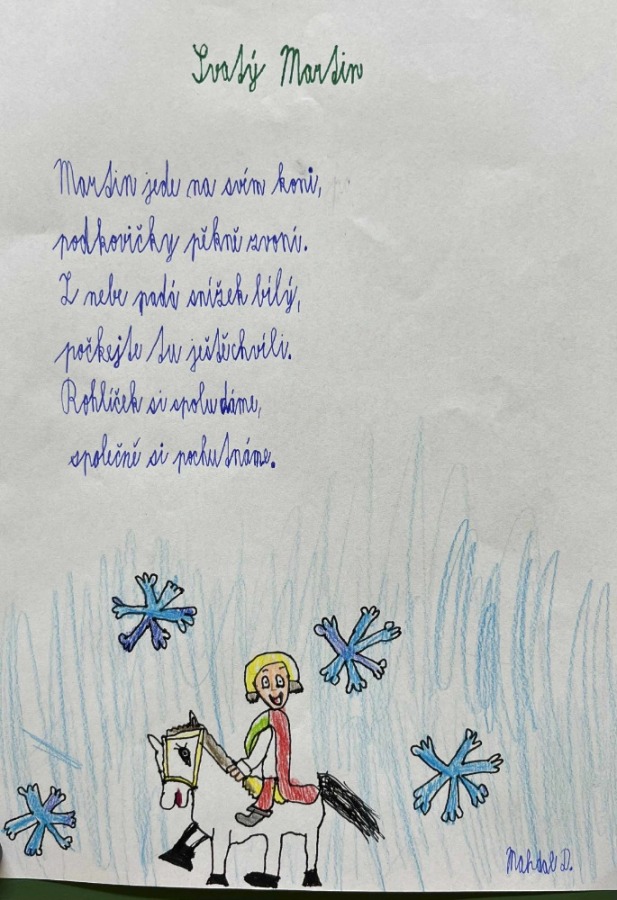 Svatý Martin
Martin jede na svím koni,
podkovičky pěkně zvoní.
Z nebe padá snížek bílý,
počkejte tu ještěchvíli.
Rohlíček si spolu dáme,
společně si pochutnáme.
Mahdal D.